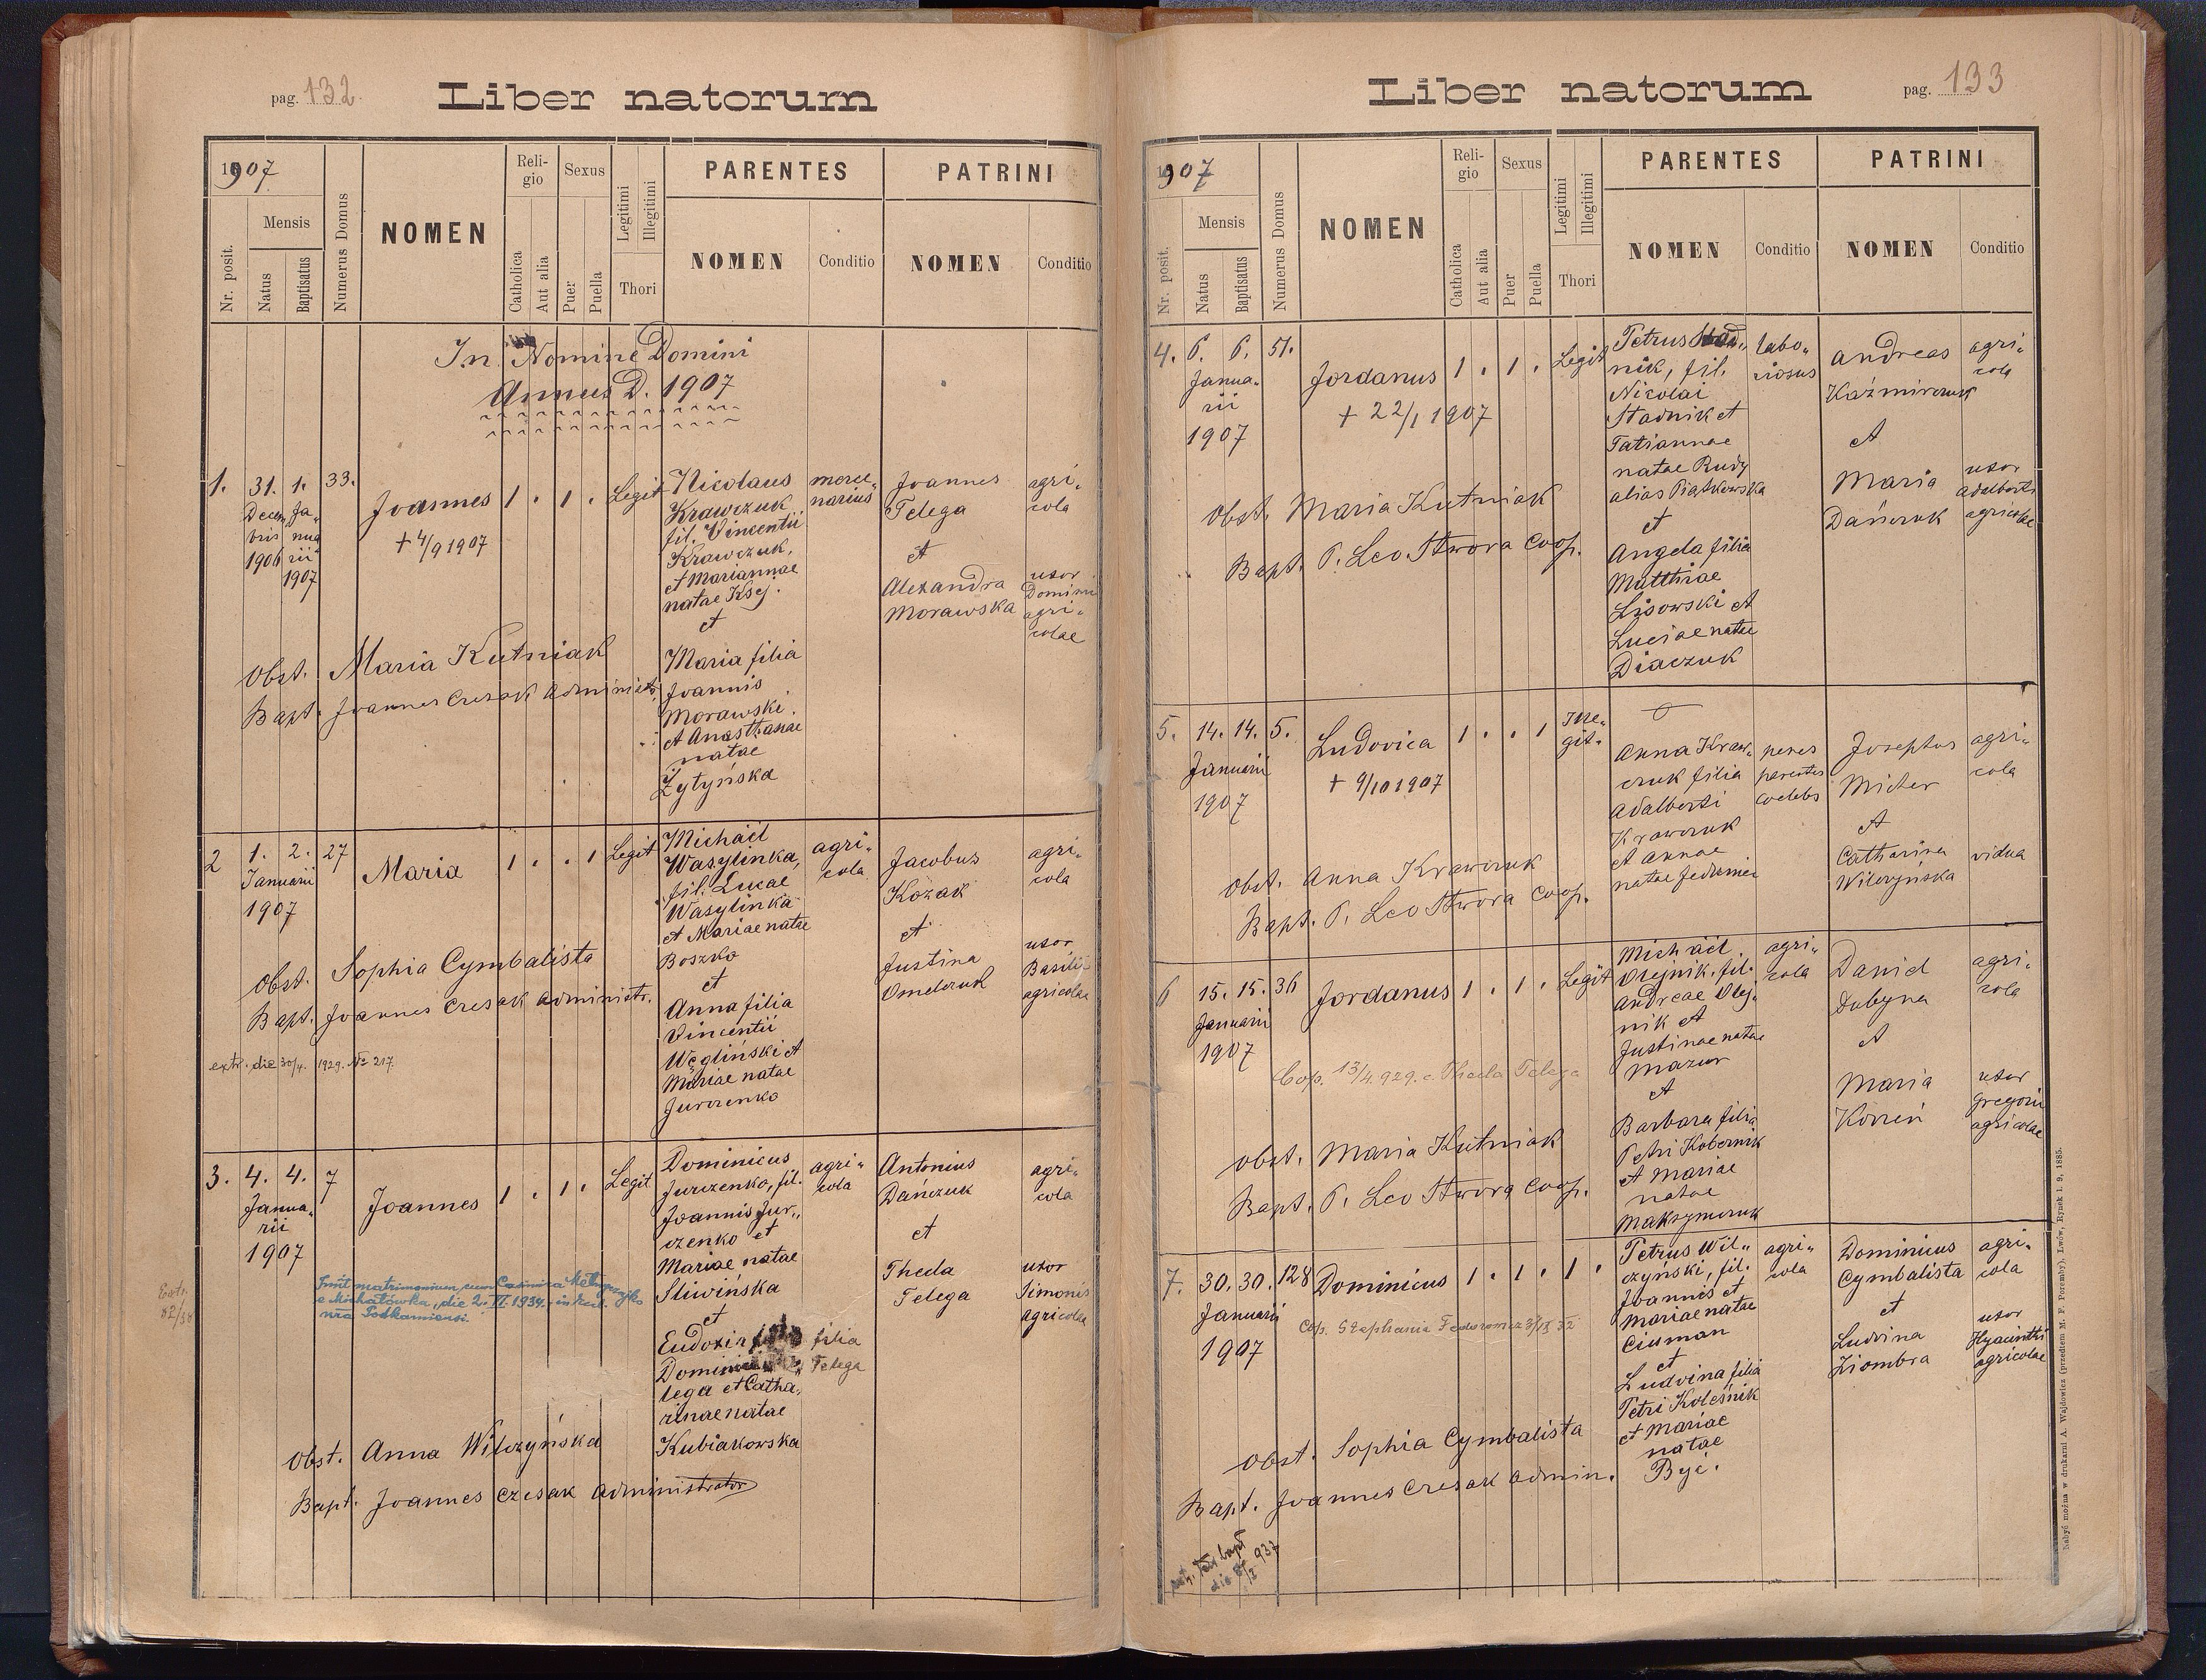 pag. 132
Liber natorum
1907
Mensis
Nr. posit.
Natus
Baptisatus
Numerus Domus
NOMEN
Reli-
gio
Catholica
Aut alia
Sexus
Puer
Puella
Legitimi
Illegitimi
Thori
PARENTES
NOMEN
Conditio
PATRINI
NOMEN
Conditio
In Nomine Domini
Annus D. 1907
1.
31.
Decem„
bris
1906
1.
Ja„
nua
rii
1907
33.
Joannes
+ 4/9 1907
1 . 1 .
Legit
Nicolaus
Krawczuk
fil. Vincentii
Krawczuk,
et Mariannae
natae Ksej.
et
Maria filia
Joannis
Morawski
et Anasthasiae
natae
Żytyńska
merce„
narius
Joannes
Telega
et
Alexandra
Morawska
agri„
cola
uxor
Domini
agri„
colae
Obst. Maria Kutniak
Bapt. Joannes Czesak administr.
2
1. 2.
Januarii
1907
27
Maria
1 . . 1
Legit
Michaël
Wasylinka,
fil. Lucae
Wasylinka
et Mariae natae
Boszko
et
Anna filia
Vincentii
Węgliński et
Mariae natae
Jurczenko
agri„
cola
Jacobus
Kozak
et
Justina
Omelczuk
agri„
cola
uxor
Basilii
agricolae
Obst. Sophia Cymbalista
Bapt. Joannes Czesak administr.
extr. die 30/4. 1929. No 217.
3.
4. 4.
Janua„
rii
1907
7
Joannes
1 . 1 .
Legit
Dominicus
Jurczenko, fil.
Joannis Jur„
czenko et
Mariae natae
Śliwińska
et
Eudoxia filia
Dominici Telega
lega et Catha„
rinae natae
Kubiakowska
agri„
cola
Antonius
Dańczuk
et
Theda
Telega
agri„
cola
uxor
Simonis
agricolae
Iniit matrimonium cum Casimira
e Michałówka, die 2. VI. 1934. in
Podkamieni.
Extr.
Obst. Anna Wilczyńska
Bapt. Joannes Czesak administrator
pag. 133
Liber natorum
1907
Mensis
Nr. posit.
Natus
Baptisatus
Numerus Domus
NOMEN
Reli-
gio
Catholica
Aut alia
Sexus
Puer
Puella
Legitimi
Illegitimi
Thori
PARENTES
NOMEN
Conditio
PATRINI
NOMEN
Conditio
4.
6. 6.
Janua„
rii
1907
51.
Jordanus
+ 22/1 1907
1 . 1 .
Legit
Petrus Stad„
nik, fil.
Nicolai
Stadnik et
Tatiannae
natae Rudy
alias Piątkowska
et
Angela filia
Matthiae
Lisowski et
Luciae natae
Diaczuk
labo„
riosus
Andreas
Kaźmirczuk
et
Maria
Dańczuk
agri„
cola
uxor
Adalberti
agricolae
Obst. Maria Kutniak
Bapt. P. Leo Stwora Coop.
5.
14. 14.
Januarii
1907
5.
Ludovica
+ 9/10 1907
1 . . 1
Ille„
git.
Anna Kraw„
czuk filia
Adalberti
Krawczuk
et Annae
natae
penes
parentes
coelebs
Josephus
Micher
et
Catharina
Wilczyńska
agri„
cola
vidua
Obst. Anna Krawczuk
Bapt. P. Leo Stwora Coop.
6
15. 15.
Januarii
1907
36
Jordanus
1 . 1 .
Legit
Michaël
Olejnik, fil.
Andreae Olej„
nik et
Justinae natae
Mazur
et
Barbara filia
Petri Kobernik
et Mariae
natae
Maksymczuk
agri„
cola
Daniel
Dubyna
et
Maria
Korzeń
agri„
cola
uxor
Gregorii
agricolae
Cop. 13/4. 929. c Theda Telega
Obst. Maria Kutniak
Bapt. P. Leo Stwora Coop.
7.
30. 30.
Januarii
1907
128
Dominicus
1 . 1 . 1 .
Petrus Wil„
czyński, fil.
Joannis et
Mariae natae
Ciuman
et
Ludvina filia
Petri Koleśnik
et Mariae
natae
Być.
agri„
cola
Dominicus
Cymbalista
et
Ludvina
Ziombra
agri„
cola
uxor
Hyacinthi
agricolae
Cop. Stephania Fedorowicz
Obst. Sophia Cymbalista
Bapt. Joannes Czesak admin.
Nabyć można w drukarni A. Wajdowicz (przedtem M. F. Poremby), Lwów, Rynek l. 9, 1885.